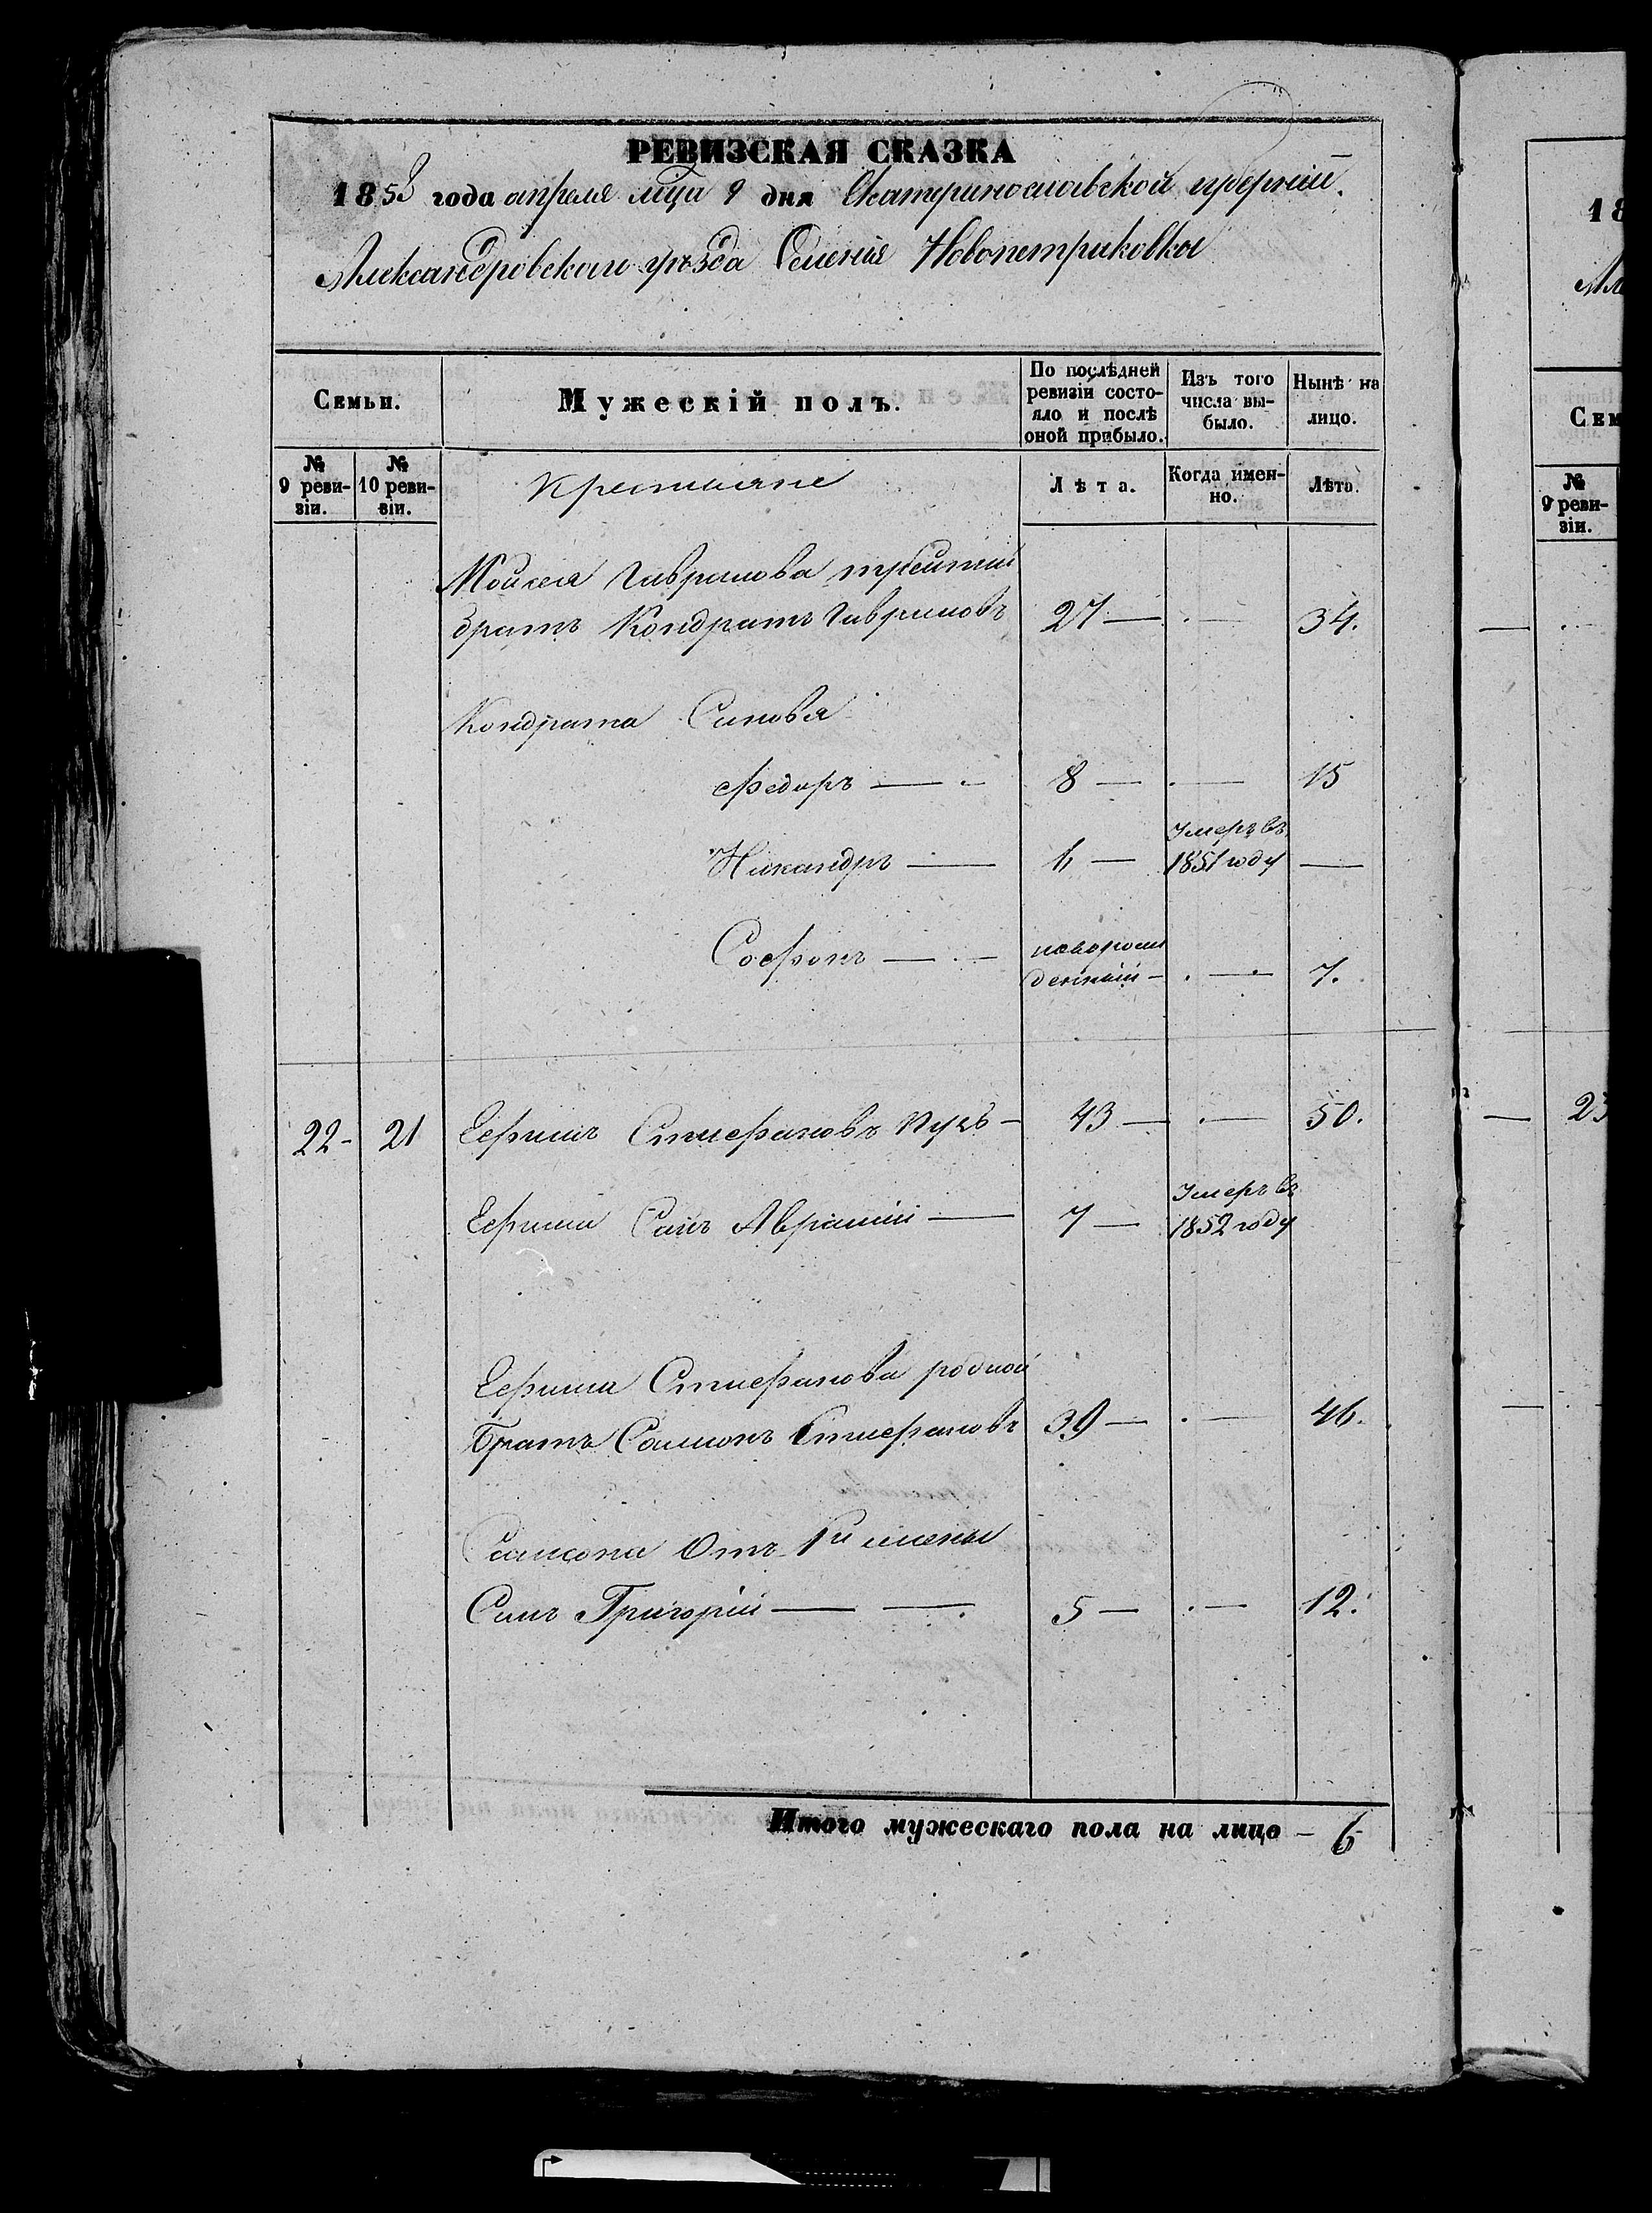 РЕВИЗСКАЯ СКАЗКА
1858 года апреля мца 9 дня Екатеринославской губерніи.
Александровскаго уѣзда Селенія Новопетриковки
Семьи.
Мужескій полъ.
По послѣдней ревизіи состояло и послѣ оной прибыло.
Изъ того числа выбыло.
Нынѣ на лицо.
№ 9 ревизіи.
№ 10 ревизіи.
Крестьяне
Лѣта.
Когда именно.
Лѣта.
Моисея Гаврилова третий
братъ Кондратъ Гавриловъ 27 — · — 34.
Кондрата Синовя
Федоръ — · – 8 — · — 15
Никандръ — 6 — Умеръ въ 1851 году —
Софонъ — · — новорожденный – · — · 7.
22 - 21 Ефимъ Стефановъ – 43 — · — 50.
Ефима Синъ Аврамій — 7 — Умеръ въ 1852 году
Ефима Стефанова родной
братъ Самсонъ Стефановъ 39 — · — 46.
Самсона Отъ 1й жены
Синъ Григорій — — . 5 — · — 12.
Итого мужескаго пола на лицо – 6
18
Сем
№ 9 ревизіи.
23